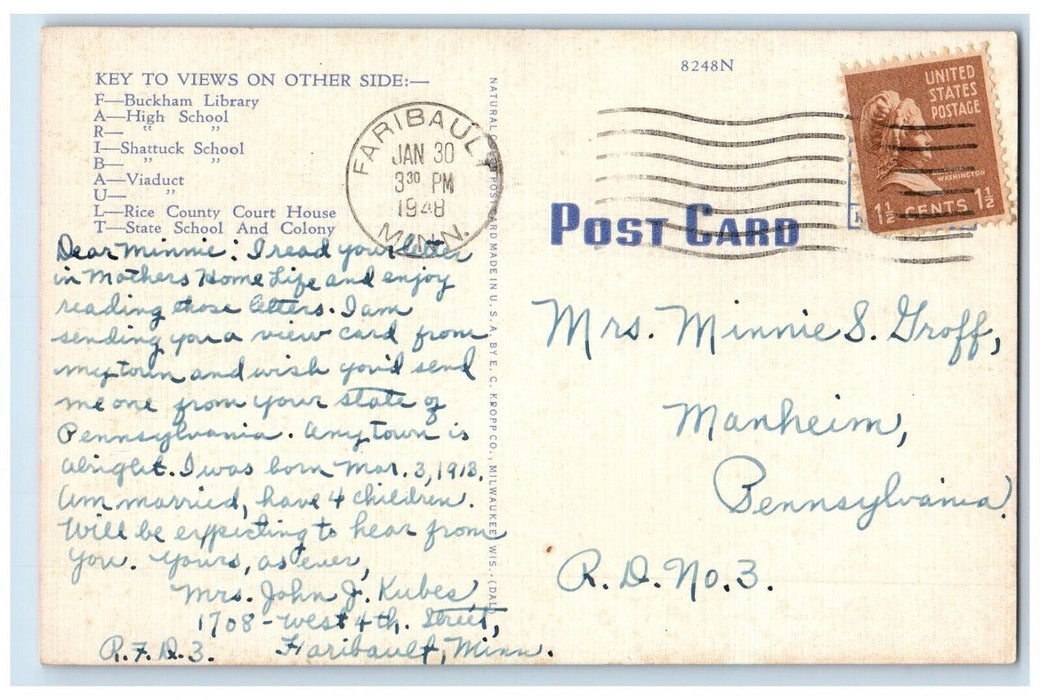 KEY TO VIEWS ON OTHER SIDE:—
F—Buckham Library
A—High School
R— " "
I—Shattuck School
B— " "
A—Viaduct
U— "
L—Rice County Court House
T—State School And Colony
Dear Minnie: I read your letter
in Mothers Home Life and enjoy
reading those letters. I am
sending you a view card from
my town and wish you'd send
me one from your state of
Pennsylvania. Any town is
alright. I was born Mar. 3, 1913.
Am married, have 4 children.
Will be expecting to hear from
you. Yours, as ever,
Mrs. John J. Kubes
1708 - West 4th. Street,
R.F.D.3. Faribault, Minn.
FARIBAULT
JAN 30
3 30 PM
1948
MINN.
POST CARD MADE IN U.S.A. BY E. C. KROPP CO., MILWAUKEE, WIS.
8248N
UNITED
STATES
POSTAGE
WASHINGTON
1½ CENTS 1½
POST CARD
Mrs. Minnie S. Groff,
Manheim,
Pennsylvania.
R. D. No. 3.